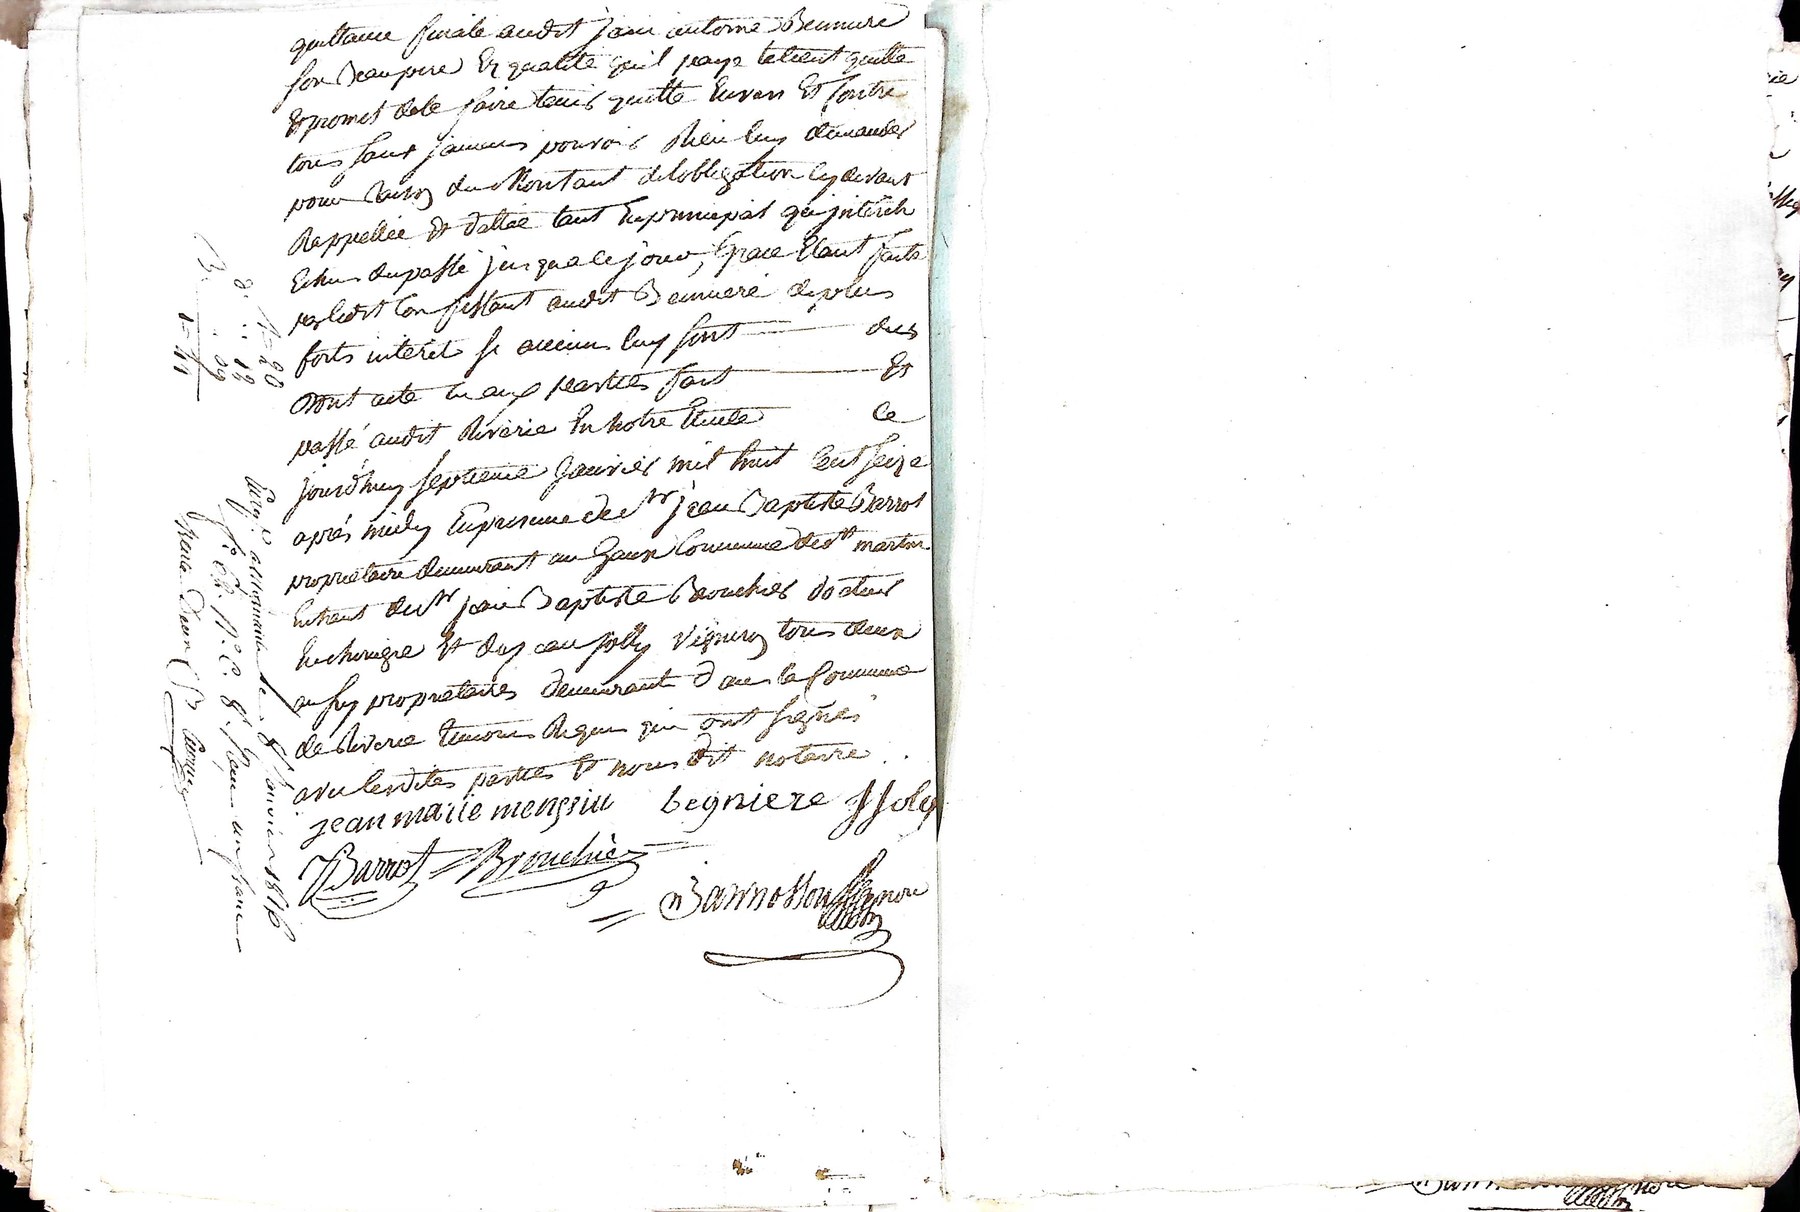 quittance finale audit jean antoine Benniere
son Beaupere En qualité qu'il paye le tient quitte
& promet de le faire tenir quitte Envers Et Contre
tous sans jamais pouvoir Rien luy demander
pour raison du Montant de l'obligation cy devant
Rappellée & dattée tant En principal qu'jnterets
Echus du passé jusqua ce jour, Grace Etant faite
par ledit Confessant audit Benniere de plus
forts interets si aucuns luy sont dus
Dont acte lu aux parties fait Et
passé audit Riverie En notre Etude Ce
jourdhuy septieme Janvier mil huit Cent seize
après midy En presence de Mr jean Baptiste Barrot
proprietaire demeurant au Commune de St martin
de Mr jean Baptiste Brouchier docteur
En chirurgie Et jolly Vigneron tous deux
aussy proprietaires demeurant dans la Commune
de Riverie temoins Requis qui ont signés
avec lesdites parties & nous dit notaire
jean marie begniere JJoly
Barrot Brouchie
1=20
12
09
1=41
le 8 Janvier 1816
Reçu un franc